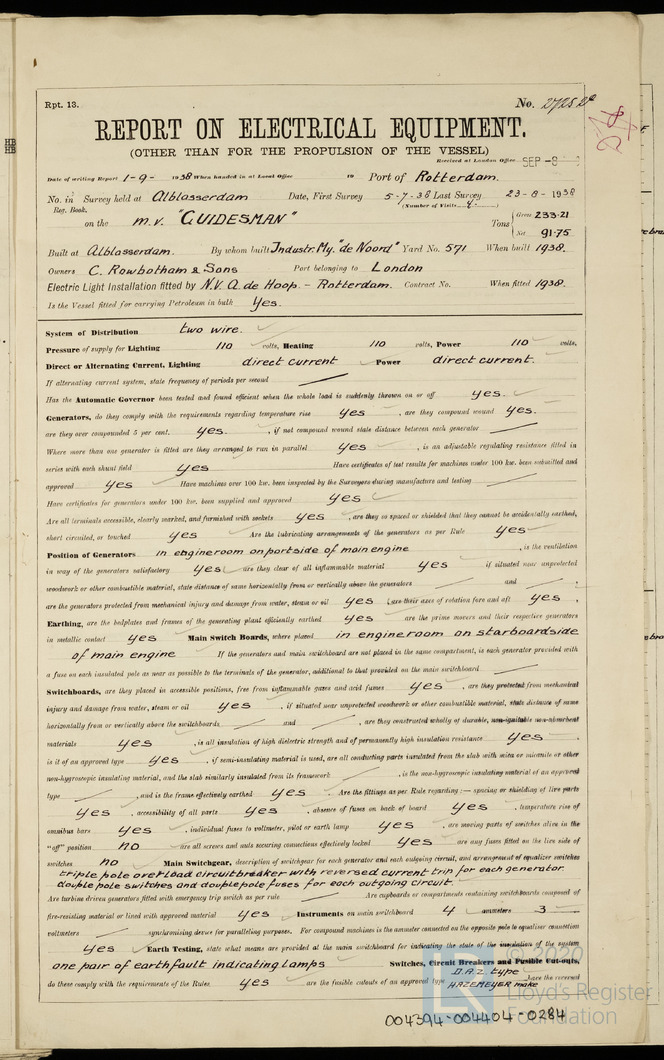 Rpt. 13.
No. 2725
REPORT ON ELECTRICAL EQUIPMENT.
(OTHER THAN FOR THE PROPULSION OF THE VESSEL)
Received at London Office SEP -8
Date of writing Report 1-9- 1938 When handed in at Local Office 19 Port of Rotterdam.
No. in Survey held at Alblasserdam Date, First Survey 5-7-38 Last Survey 23-8-1938
Reg. Book. (Number of Visits 4.)
on the m.v. "GUIDESMAN" Tons { Gross 233.21 Net 91.75
Built at Alblasserdam. By whom built Industr. My. "de Noord" Yard No. 571 When built 1938.
Owners C. Rowbotham & Sons Port belonging to London
Electric Light Installation fitted by N.V. A. de Hoop. - Rotterdam. Contract No. When fitted 1938.
Is the Vessel fitted for carrying Petroleum in bulk Yes.
System of Distribution two wire.
Pressure of supply for Lighting 110 volts, Heating 110 volts, Power 110 volts,
Direct or Alternating Current, Lighting direct current Power direct current.
If alternating current system, state frequency of periods per second
Has the Automatic Governor been tested and found efficient when the whole load is suddenly thrown on or off yes.
Generators, do they comply with the requirements regarding temperature rise yes, are they compound wound yes.
are they over compounded 5 per cent. yes. , if not compound wound state distance between each generator
Where more than one generator is fitted are they arranged to run in parallel yes , is an adjustable regulating resistance fitted in
series with each shunt field yes Have certificates of test results for machines under 100 kw. been submitted and
approved yes Have machines over 100 kw. been inspected by the Surveyors during manufacture and testing
Have certificates for generators under 100 kw. been supplied and approved yes
Are all terminals accessible, clearly marked, and furnished with sockets yes , are they so spaced or shielded that they cannot be accidentally earthed,
short circuited, or touched yes Are the lubricating arrangements of the generators as per Rule yes
Position of Generators in engineroom on portside of main engine , is the ventilation
in way of the generators satisfactory yes are they clear of all inflammable material yes if situated near unprotected
woodwork or other combustible material, state distance of same horizontally from or vertically above the generators and
are the generators protected from mechanical injury and damage from water, steam or oil yes , are their axes of rotation fore and aft yes.
Earthing, are the bedplates and frames of the generating plant efficiently earthed yes are the prime movers and their respective generators
in metallic contact yes Main Switch Boards, where placed in engineroom on starboardside
of main engine If the generators and main switchboard are not placed in the same compartment, is each generator provided with
a fuse on each insulated pole as near as possible to the terminals of the generator, additional to that provided on the main switchboard
Switchboards, are they placed in accessible positions, free from inflammable gases and acid fumes yes , are they protected from mechanical
injury and damage from water, steam or oil yes , if situated near unprotected woodwork or other combustible material, state distance of same
horizontally from or vertically above the switchboards and , are they constructed wholly of durable, non-ignitable non-absorbent
materials yes , is all insulation of high dielectric strength and of permanently high insulation resistance yes
is it of an approved type yes , if semi-insulating material is used, are all conducting parts insulated from the slab with mica or micanite or other
non-hygroscopic insulating material, and the slab similarly insulated from its framework , is the non-hygroscopic insulating material of an approved
type , and is the frame effectively earthed yes Are the fittings as per Rule regarding :— spacing or shielding of live parts
yes , accessibility of all parts yes , absence of fuses on back of board yes , temperature rise of
omnibus bars yes , individual fuses to voltmeter, pilot or earth lamp yes , are moving parts of switches alive in the
"off" position no are all screws and nuts securing connections effectively locked yes are any fuses fitted on the live side of
switches no Main Switchgear, description of switchgear for each generator and each outgoing circuit, and arrangement of equalizer switches
triple pole overload circuitbreaker with reversed current trip for each generator
double pole switches and double pole fuses for each outgoing circuit.
Are turbine driven generators fitted with emergency trip switch as per rule Are cupboards or compartments containing switchboards composed of
fire-resisting material or lined with approved material yes Instruments on main switchboard 4 ammeters 3
voltmeters synchronising device for paralleling purposes. For compound machines is the ammeter connected on the opposite pole to equaliser connection
yes Earth Testing, state what means are provided at the main switchboard for indicating the state of the insulation of the system
one pair of earth fault indicating lamps Switches, Circuit Breakers and Fusible Cut-outs,
do these comply with the requirements of the Rules yes are the fusible cutouts of an approved type D.A.Z. type HAZEMEYER make have the reversed
© 202
Lloyd's Register
Foundation
004394-004404-0284